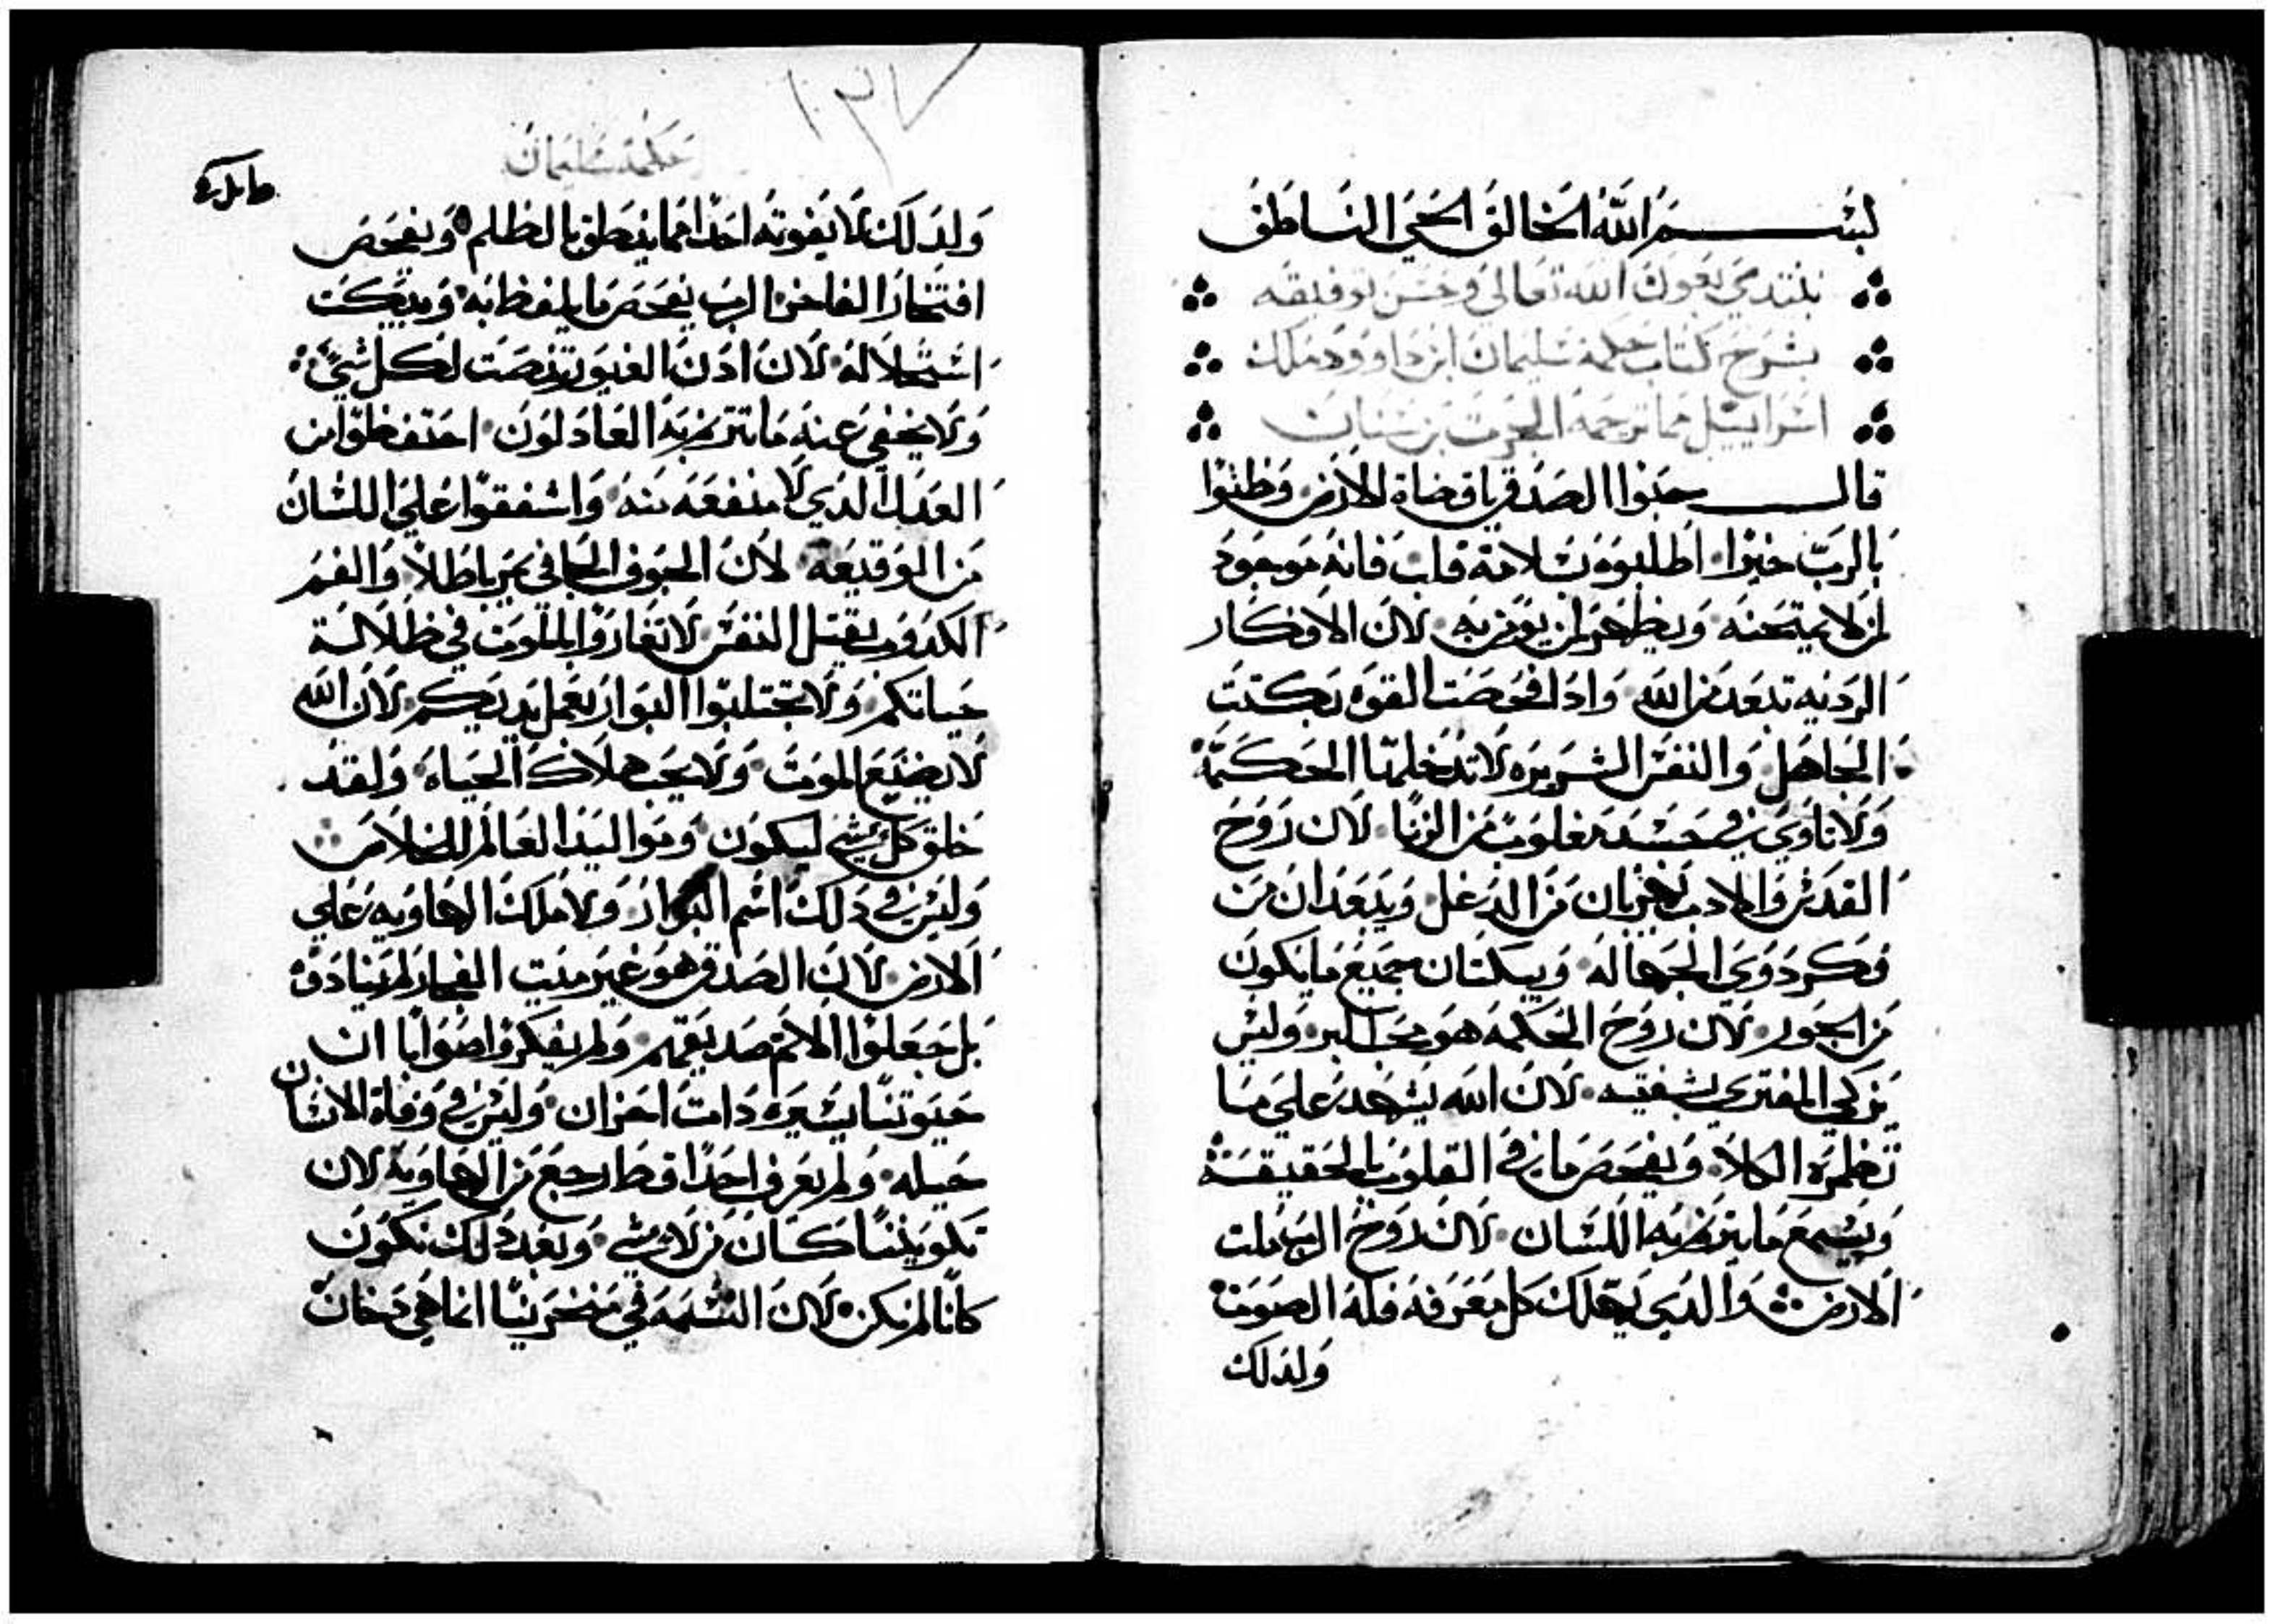 بسم الله الخالق الحي الناطق
نبتدي بعون الله تعالي وحسن توفيقه
بشرح كتاب حكمة سليمان ابن داوود ملك
اسراييل مما ترجمه الحرث بن سنان
قال حبوا الصدق يا قضاة الارض وظنوا
بالرب خيرا اطلبوه بسلامة قلب فانه موجود
لمن لا يمتحنه ويظهر لمن يومن به لان الافكار
الرديه تبعد من الله واذا فحصت القوه بكتت
الجاهل والنفس الشريره لا تدخلها الحكمة
ولا تاوي في جسد مغلوب من الزنا لان روح
القدس والادب يهربان من الدغل ويبعدان من
فكر ذوي الجهاله ويبكتان جميع ما يكون
من الجور لان روح الحكمه هو محب البر وليس
يزكي المفتري بشفتيه لان الله يشهد علي ما
تضمره الكلا ويفحص ما في القلوب بالحقيقة
ويسمع ما يترنم به اللسان لان روح الرب ملت
الارض والذي يملك كل معرفه فله الصوت
ولذلك
١٣٧
حكمة سليمان
ولذلك لا يفوته احدا مما ينطق بالظلم ويفحص
افتخار الفاخر الرب يفحص ما يلفظ به ويبكت
اشتمالاله لان اذن الغيور تنصت لكل شي
ولا يخفي عنه ما يترنم به العاذلون احتفظوا من
العذل الذي لا منفعه منه واشفقوا علي اللسان
من الوقيعة لان الجوف الجافي يمر باطلا والفم
الكدوب يقتل النفس لا تغاروا الموت في ضلالة
حياتكم ولا تجتلبوا البوار بعمل يديكم لان الله
لا يصنع الموت ولا يحب هلاك الحياه ولقد
خلق كل شي ليكون ومواليد العالم للخلاص
وليس في ذلك اسم البوار ولا ملك الهاويه علي
الارض لان الصدق هو غير ميت الفجار لم ينادوه
بل جعلوا الاثم صديقهم ولم يفكروا صوابا ان
حيوتنا يسيره ذات احزان وليس في وفاة الانسان
حيله ولم يعرف احدا قط رجع من الهاوية لان
تكويننا كان من لا شي وبعد ذلك نكون
كانا لم نكن لان النسمه في منخرينا انما هي دخان